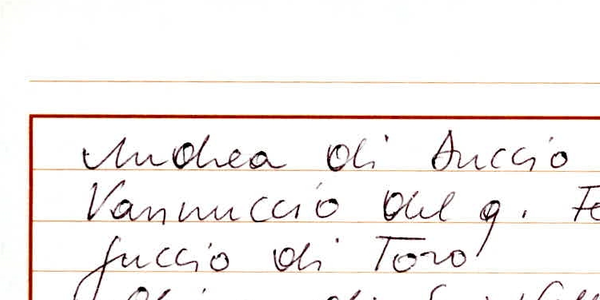 Andrea di Auccio
Vannuccio del q. Fe
Juccio di Toro
di